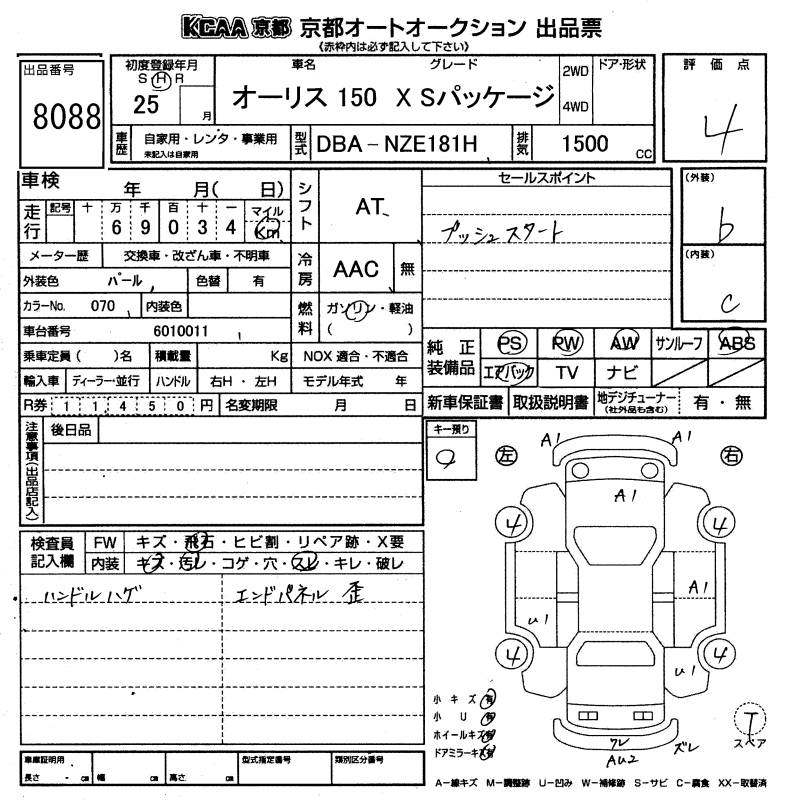 KCAA 京都 京都オートオークション 出品票
《赤枠内は必ず記入して下さい》
出品番号
8088
初度登録年月
S H R
25 月
車名 グレード
オーリス 150 X Sパッケージ
2WD
4WD
ドア・形状
評価点
4
車歴
自家用・レンタ・事業用
未記入は自家用
型式
DBA-NZE181H
排気
1500 cc
車検 年 月( 日)
走行
記号 十 万 千 百 十 一 マイル
6 9 0 3 4 Km
シフト
AT
セールスポイント
プッシュスタート
(外装)
b
(内装)
c
メーター歴 交換車・改ざん車・不明車
外装色 パール 色替 有
冷房
AAC 無
カラーNo. 070 内装色
燃料
ガソリン・軽油
( )
車台番号 6010011
乗車定員( )名 積載量 Kg NOX 適合・不適合
輸入車 ディーラー・並行 ハンドル 右H・左H モデル年式 年
R券 1 1 4 5 0 円 名変期限 月 日
純正装備品
PS PW AW サンルーフ ABS
エアバック TV ナビ
新車保証書 取扱説明書 地デジチューナー(社外品も含む) 有・無
注意事項(出品店記入)
後日品
キー預り
左 右
A1 A1
A1
4 4
A1
U1
U1
4 4
ワレ
AU2 ズレ
T
スペア
検査員記入欄
FW キズ・飛石・ヒビ割・リペア跡・X要
内装 キズ・汚レ・コゲ・穴・スレ・キレ・破レ
ハンドルハゲ エンドパネル 歪
小キズ 有
小U
ホイールキズ
ドアミラーキズ
車庫証明用
長さ cm 幅 cm 高さ cm
型式指定番号
類別区分番号
A-線キズ M-調整跡 U-凹み W-補修跡 S-サビ C-腐食 XX-取替済